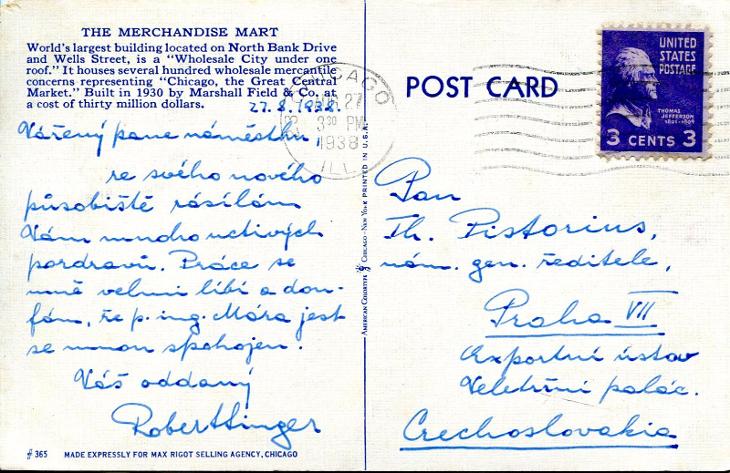 THE MERCHANDISE MART
World's largest building located on North Bank Drive
and Wells Street, is a "Wholesale City under one
roof." It houses several hundred wholesale mercantile
concerns representing "Chicago, the Great Central
Market." Built in 1930 by Marshall Field & Co. at
a cost of thirty million dollars.
27.8.1938.
Vážený pane náměstku,
ze svého nového
působiště zásílám
Vám mnoho uctivých
pozdravů. Práce se
mně velmi líbí a dou-
fám, že p. ing. Móra jest
se mnou spokojen.
Váš oddaný
Robert Singer
# 365 MADE EXPRESSLY FOR MAX RIGOT SELLING AGENCY, CHICAGO
CHICAGO
27
3 30 PM
1938
ILL
CHICAGO - NEW YORK PRINTED IN U.S.A.
POST CARD
UNITED
STATES
POSTAGE
THOMAS
JEFFERSON
1801-1809
3 CENTS 3
Pan
Th. Pistorius,
nám. gen. ředitele,
Praha VII
Exportní ústav
Veletržní palác.
Czechoslovakia